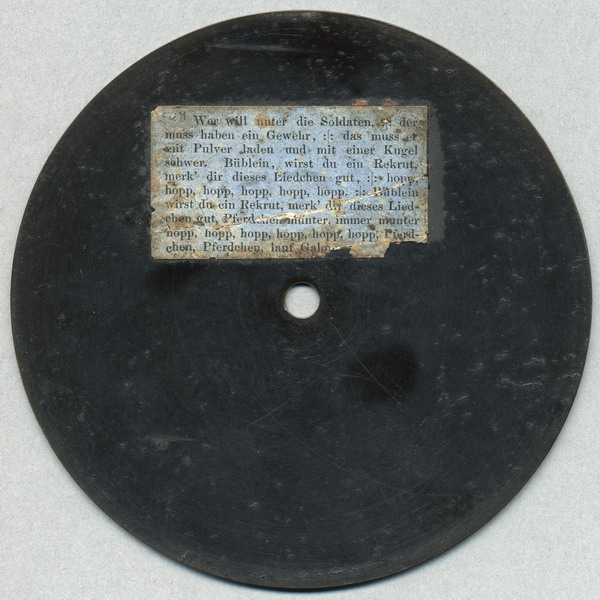 Wer will unter die Soldaten, :: der
muss haben ein Gewehr, :: das muss er
mit Pulver laden und mit einer Kugel
schwer. Büblein, wirst du ein Rekrut,
merk' dir dieses Liedchen gut, :: hopp,
hopp, hopp, hopp, hopp, hopp. :: Büblein
wirst du ein Rekrut, merk' dir dieses Lied-
chen gut, Pferdchen munter, immer munter
hopp, hopp, hopp, hopp, hopp, hopp, Pferd-
chen, Pferdchen, lauf